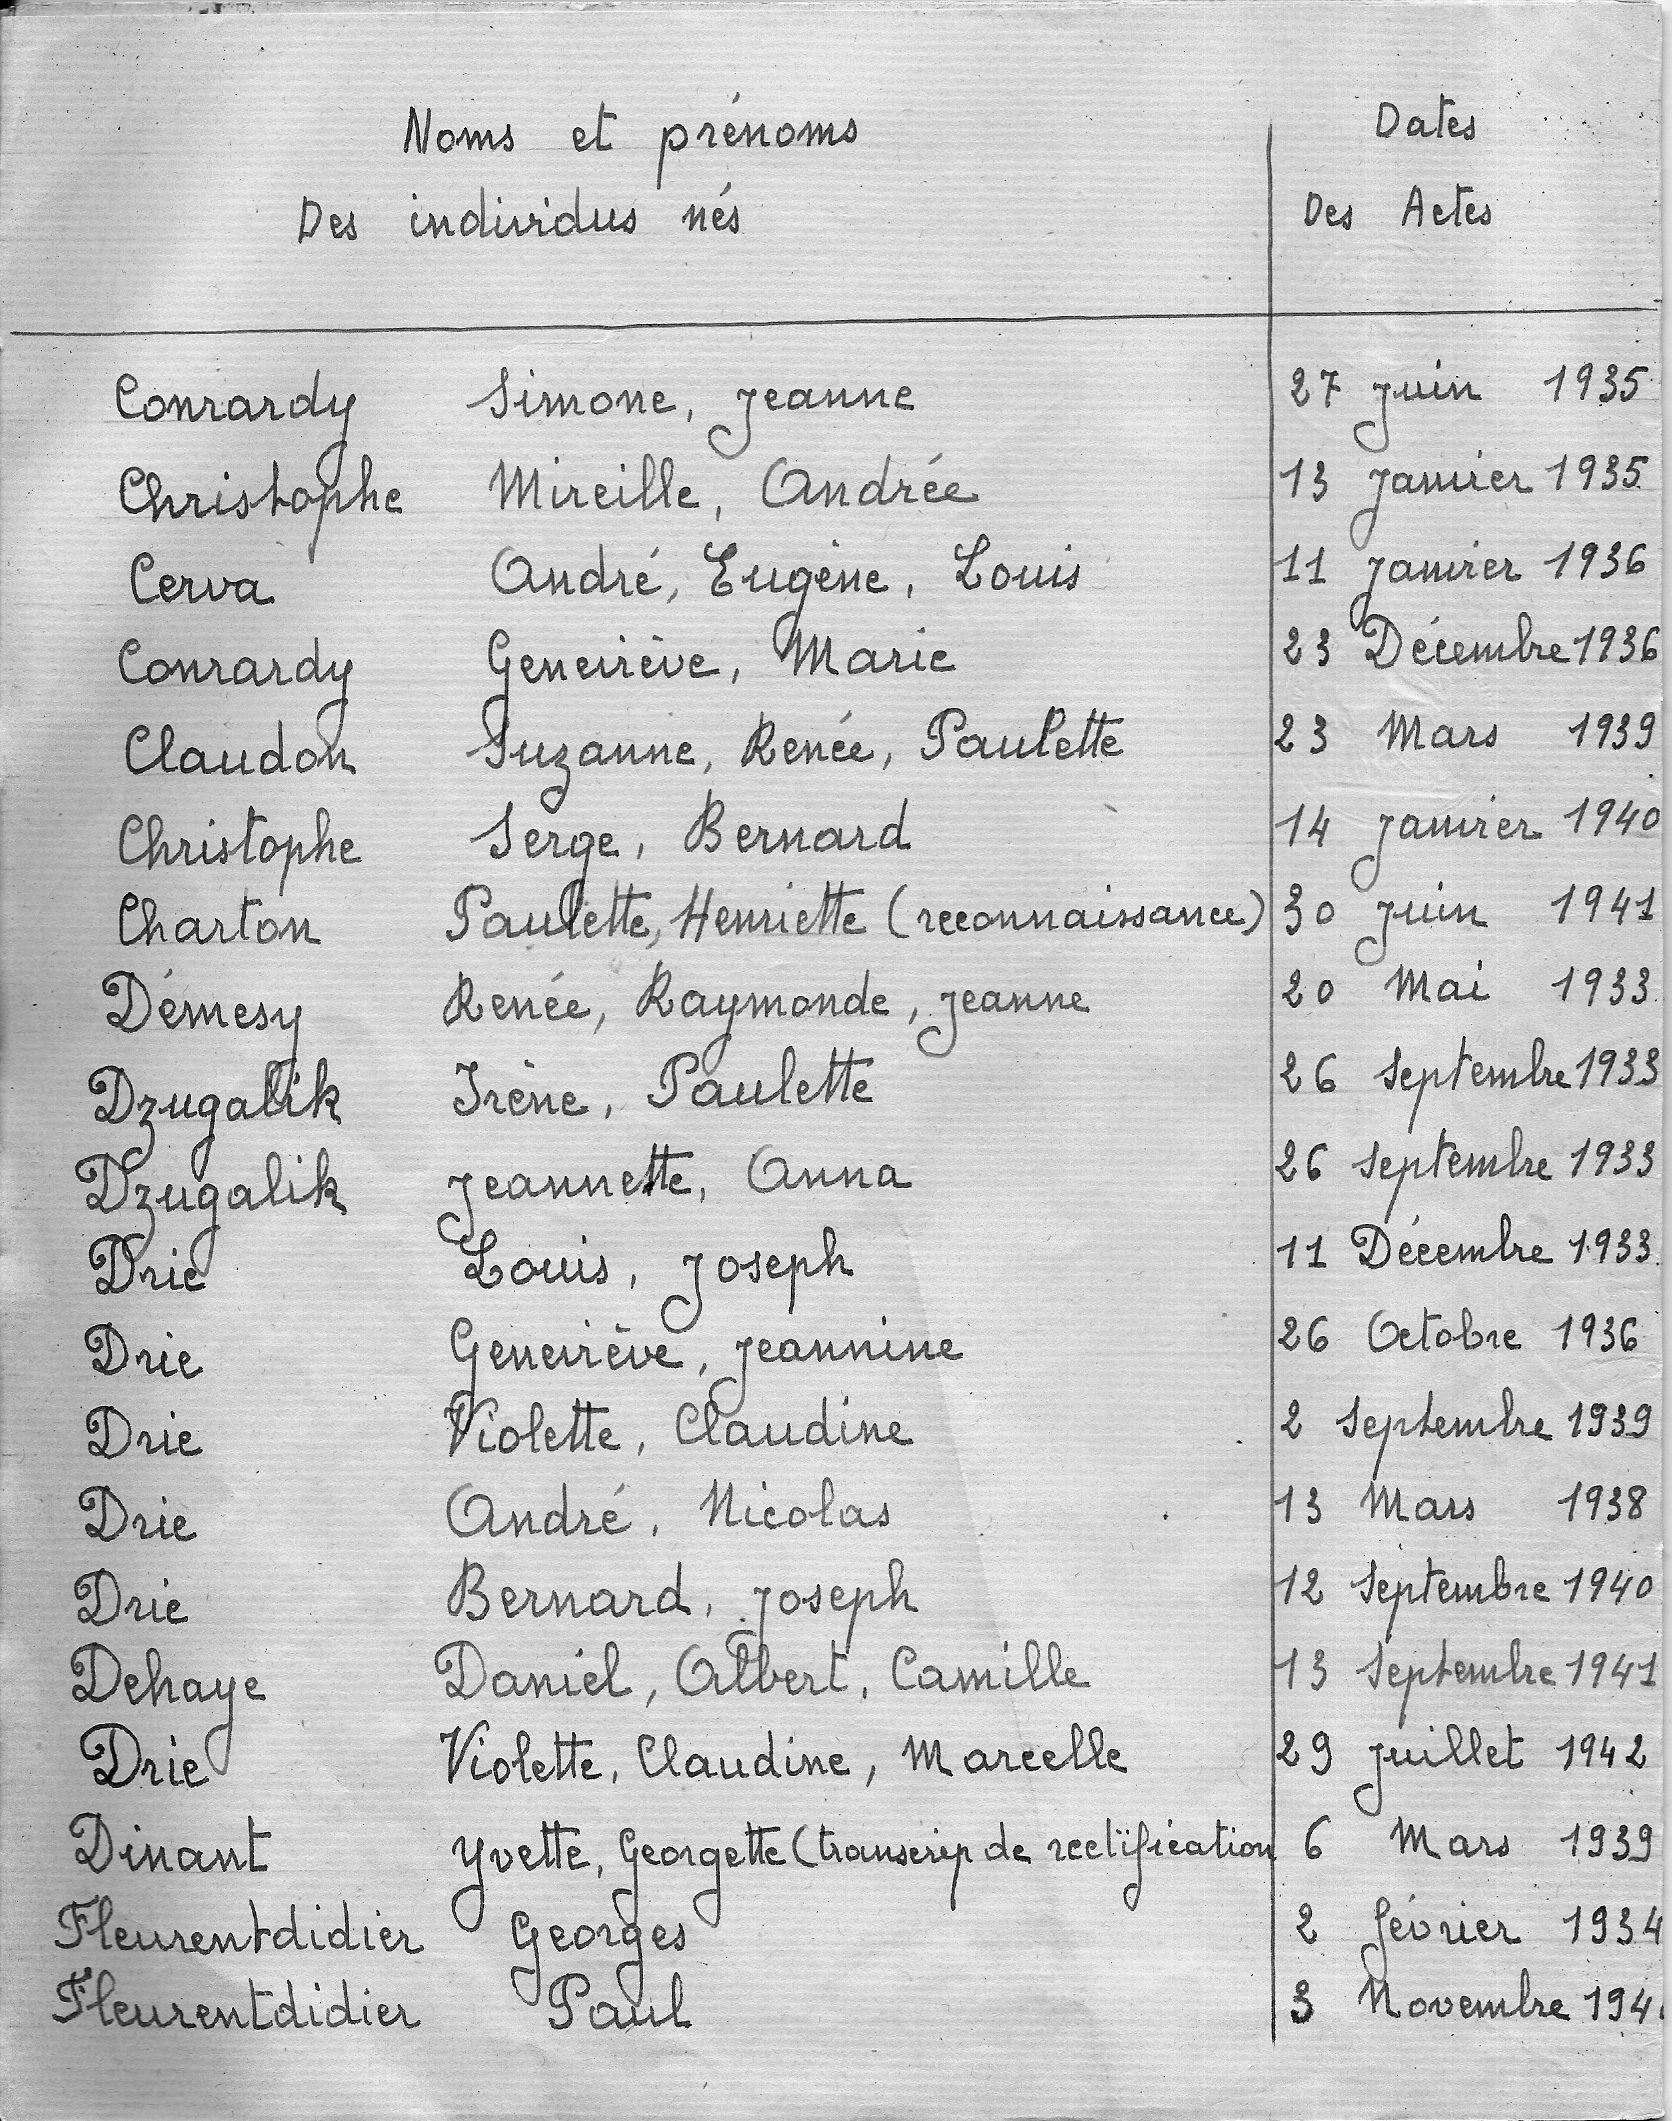 Noms et prénoms
Dates
Des individus nés
Des Actes
Conrardy Simone, Jeanne 27 juin 1935
Christophe Mireille, Andrée 13 janvier 1935
Cerva André, Eugène, Louis 11 janvier 1936
Conrardy Geneviève, Marie 23 Décembre 1936
Claudon Suzanne, Renée, Paulette 23 Mars 1939
Christophe Serge, Bernard 14 janvier 1940
Charton Paulette, Henriette (reconnaissance) 30 juin 1941
Démesy Renée, Raymonde, Jeanne 20 Mai 1933
Dzugalik Irène, Paulette 26 Septembre 1933
Dzugalik Jeannette, Anna 26 Septembre 1933
Drie Louis, Joseph 11 Décembre 1933
Drie Geneviève, Jeannine 26 Octobre 1936
Drie Violette, Claudine 2 Septembre 1939
Drie André, Nicolas 13 Mars 1938
Drie Bernard, Joseph 12 Septembre 1940
Dehaye Daniel, Albert, Camille 13 Septembre 1941
Drie Violette, Claudine, Marcelle 29 juillet 1942
Dinant Yvette, Georgette (transcrip de rectification 6 Mars 1939
Fleurentdidier Georges 2 février 1934
Fleurentdidier Paul 3 Novembre